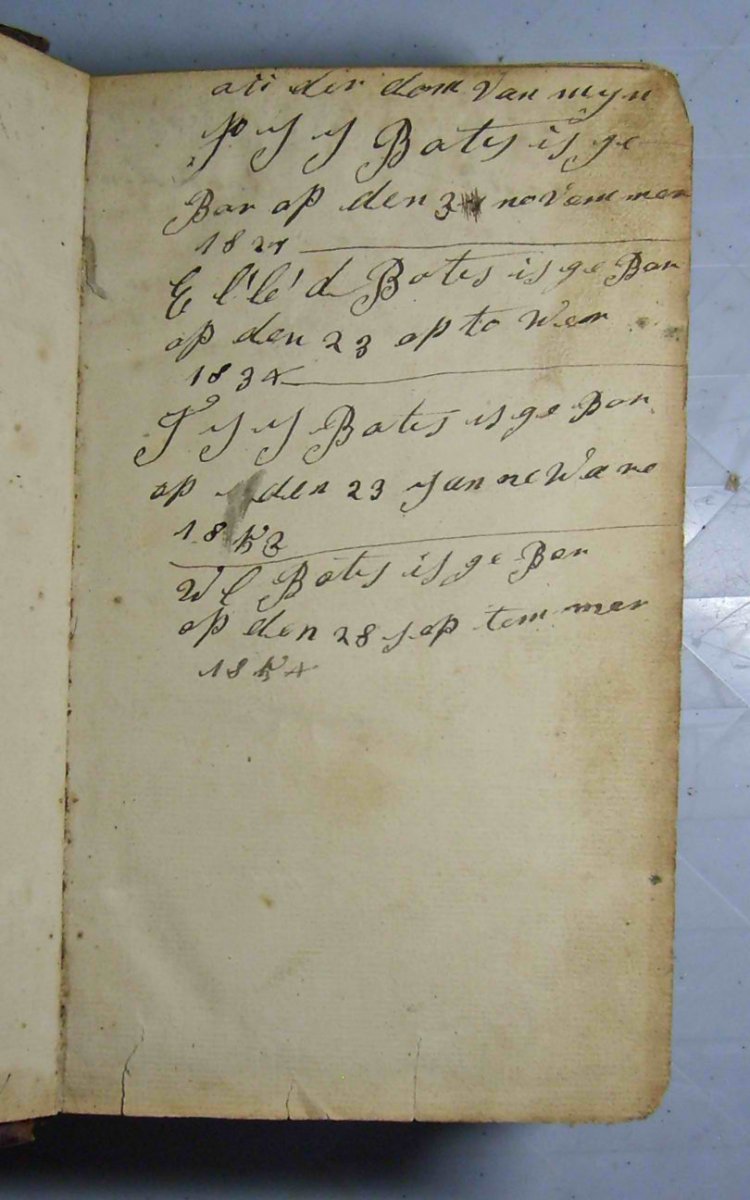 ou der dom van myn
P J J Botes is ge
Bor op den 3 novem mer
1827
E l l d Botes is ge Bor
op den 23 op to Wer
1834
J J J Botes is ge Bor
op den 23 Jan ne Wa re
1853
W C Botes is ge Bor
op den 28 sep tem mer
1854